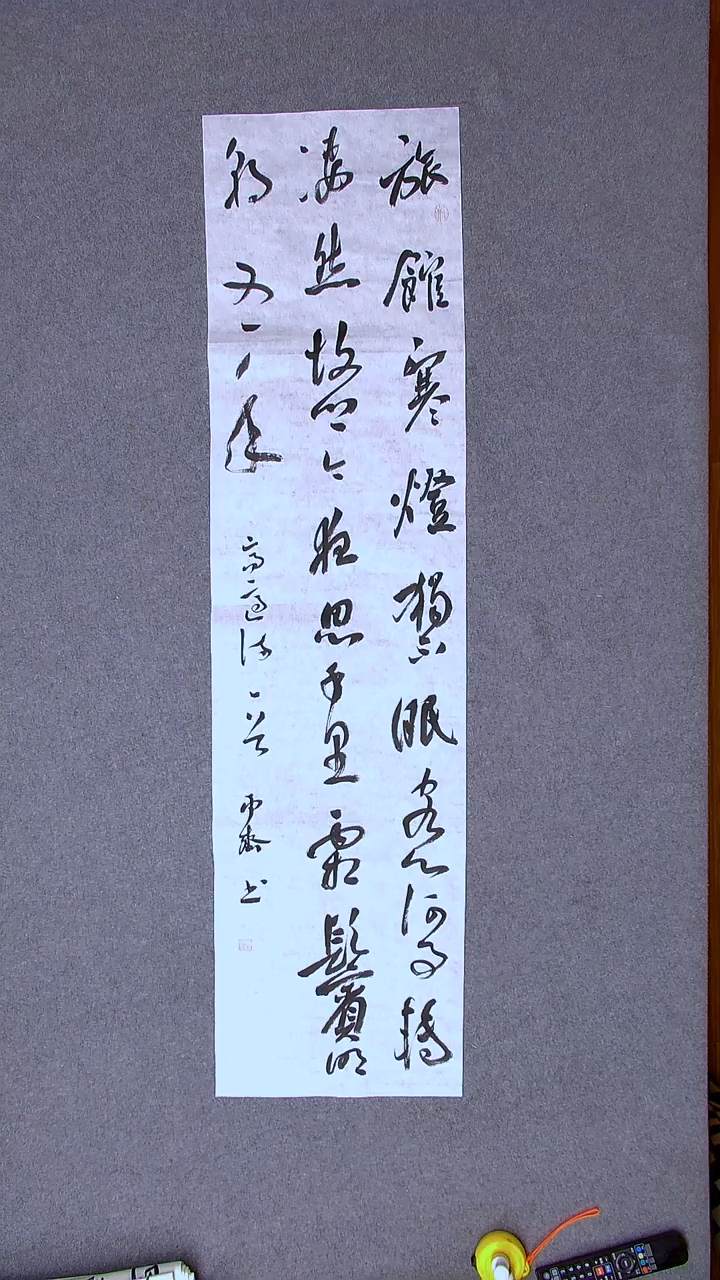 旅館寒燈獨不眠客心何事轉
凄然故鄉今夜思千里霜鬢明
朝又一年
高適詩一首 書